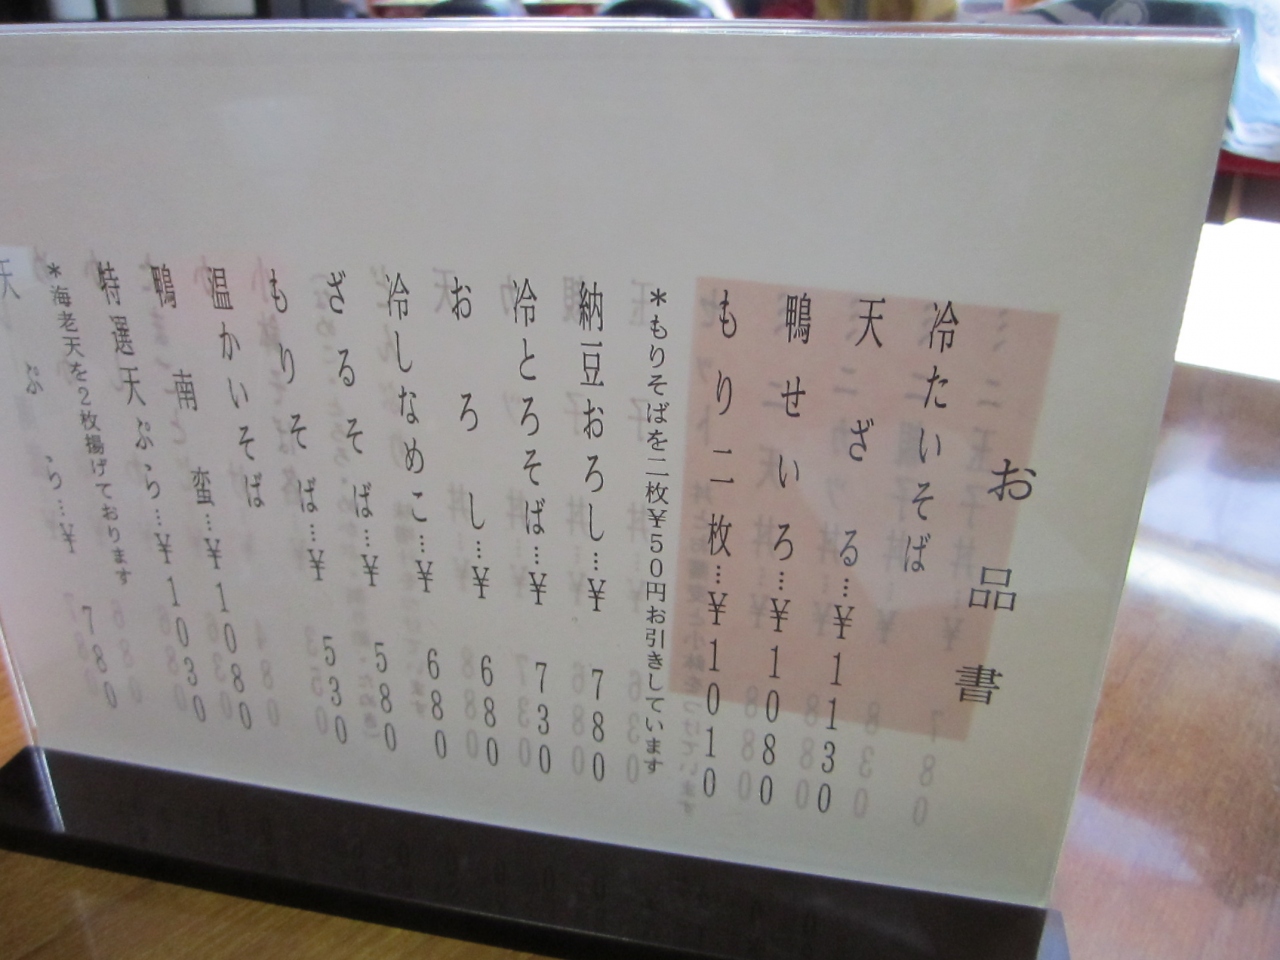 お品書
冷たいそば
天ざる…¥1130
鴨せいろ…¥1080
もり二枚…¥1010
＊もりそばを二枚¥50円お引きしています
納豆おろし…¥780
冷とろそば…¥730
おろし…¥680
冷しなめこ…¥680
ざるそば…¥580
もりそば…¥530
温かいそば
鴨南蛮…¥1080
特選天ぷら…¥1030
＊海老天を2枚揚げております
天ぷら…¥780